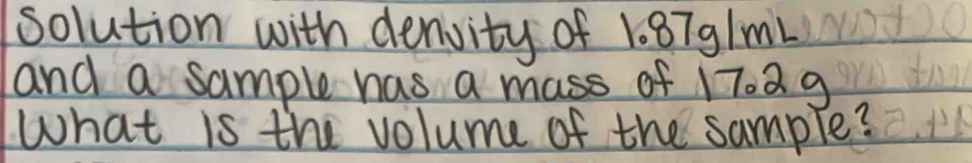 Solution with denvity of 1.87g/mL
and a sample has a mass of 17.2g
What is the volume of the sample?